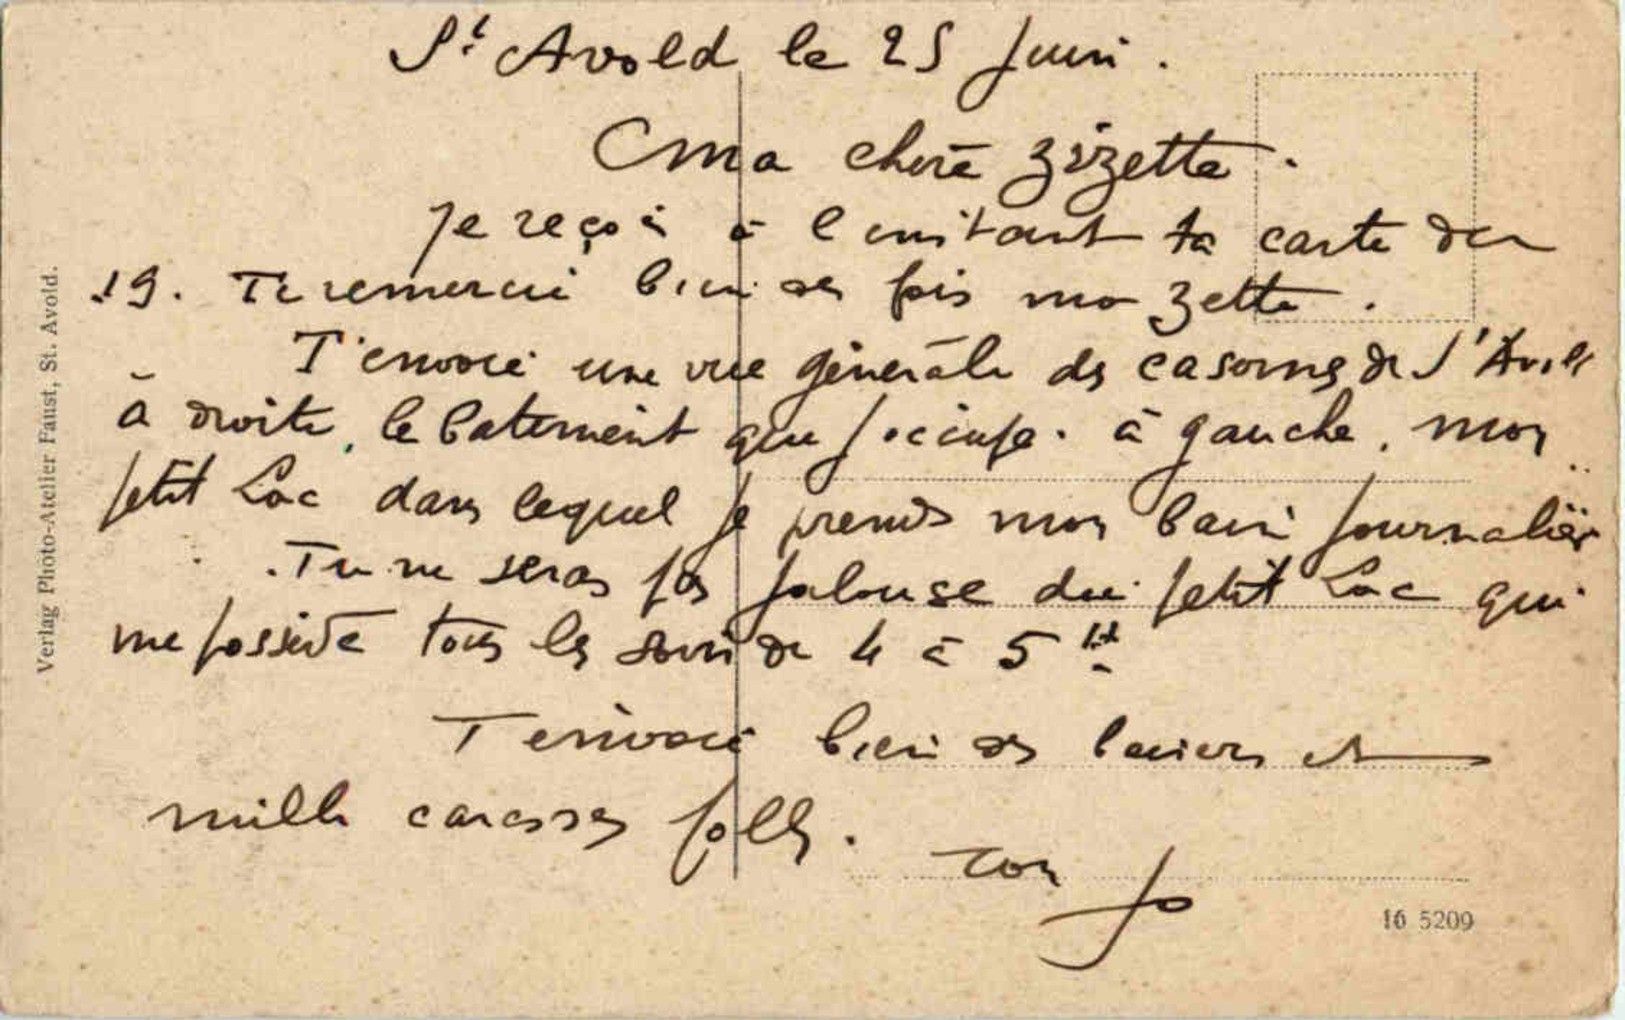 St Avold le 25 Juin.
Ma chère Zizette.
Je reçois à l'instant ta carte du
19. Te remercie bien des fois ma Zette.
T'envoie une vue générale des casernes de St Avold
à droite, le batement que j'occupe. à gauche, mon
petit Lac dans lequel je prends mon bain journalier
. Tu ne seras pas jalouse du petit Lac qui
me possède tous les soirs de 4 à 5 H.
T'envoie bien des baisers et
mille caresses folles.
ton Jo
Verlag Photo-Atelier Faust, St. Avold.
16 5209